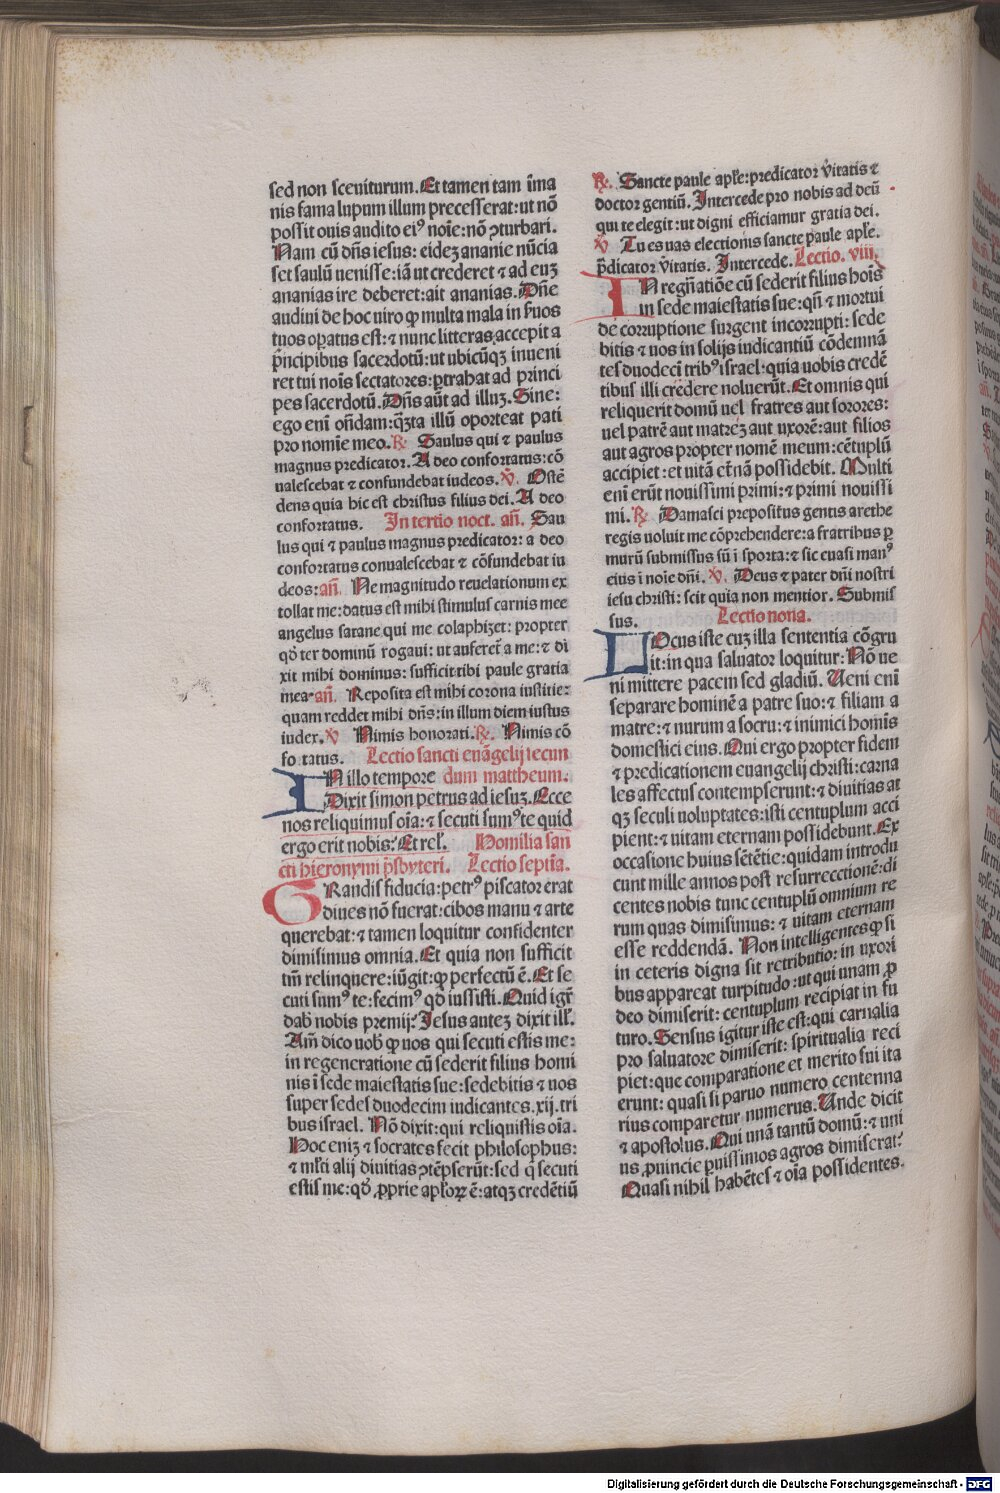 sed non sceviturum. Et tamen tam īma
nis fama lupum illum precesserat: ut nō
possit ouis audito eiꝰ noīe: nō ꝯturbari.
Nam cū dn̄s iesus: eidez ananie nūcia
set saulū uenisse: iā ut crederet ⁊ ad euz
ananias ire deberet: ait ananias. Dn̄e
audini de hoc uiro ꝙ multa mala in s̄uos
tuos oꝑatus est: ⁊ nunc litteras accepit a
p̄ncipibus sacerdotū: ut ubicūqꝫ inueni
ret tui noīs sectatores: ꝑtrahat ad princi
pes sacerdotū. Dn̄s aūt ad illuz. Sine:
ego enī on̄dam: q̄ꝫta illū oporteat pati
pro nomīe meo. ℟ Saulus qui ⁊ paulus
magnus predicator. A deo confortatus: cō
ualescebat ⁊ confundebat iudeos. ℣. Ostē
dens quia hic est christus filius dei. A deo
confortatus. In tertio noct. an̄. Sau
lus qui ⁊ paulus magnus predicator: a deo
confortatus conualescebat ⁊ cōfundebat iu
deos: an̄. Ne magnitudo reuelationum ex
tollat me: datus est mihi stimulus carnis mee
angelus satane qui me colaphizet: propter
qd̄ ter dominū rogaui: ut auferet᷑ a me: ⁊ di
xit mihi dominus: sufficit tibi paule gratia
mea. an̄. Reposita est mihi corona iustitie:
quam reddet mihi dn̄s: in illum diem iustus
iudex. ℣ Nimis honorati. ℟. Nimis cō
fo tatus. Lectio sancti euāgelij secun
IN illo tempore dum mattheum.
Dixit simon petrus ad iesuz. Ecce
nos reliquimus oīa: ⁊ secuti sumꝰ te quid
ergo erit nobis? Et rel'. Homilia san
cti hieronymi p̄sbyteri. Lectio septīa.
GRandis fiducia: petrꝰ piscator erat
diues nō fuerat: cibos manu ⁊ arte
querebat: ⁊ tamen loquitur confidenter
dimisimus omnia. Et quia non sufficit
tm̄ relinquere: iūgit: ꝙ perfectū ē. Et se
cuti sumꝰ te: fecimꝰ qd̄ iussisti. Quid igr̄
dab̄ nobis premij? Iesus autez dixit ill'.
Am̄ dico uob̄ ꝙ uos qui secuti estis me:
in regeneratione cū sederit filius homi
nis ī sede maiestatis sue: sedebitis ⁊ uos
super sedes duodecim iudicantes .xij. tri
bus israel. Nō dixit: qui reliquistis oīa.
Hoc enīz ⁊ socrates fecit philosophus:
⁊ ml'ti alij diuitias ꝯtēpserūt: sed q̄ secuti
estis me: qd̄ ꝓprie apl'oꝝ ē: atqꝫ credētiū
℟. Sancte paule apl'e: predicator v̄itatis ⁊
doctor gentiū. Intercede pro nobis ad deū
qui te elegit: ut digni efficiamur gratia dei.
℣ Tu es uas electionis sancte paule apl'e.
p̄dicator v̄itatis. Intercede. Lectio. viii.
IN regn̄atiōe cū sederit filius hoīs
in sede maiestatis sue: qn̄ ⁊ mortui
de corruptione surgent incorrupti: sede
bitis ⁊ uos in solijs iudicantiū cōdemnā
tes duodecī tribꝰ israel: quia uobis credē
tibus illi credere noluerūt. Et omnis qui
reliquerit domū uel fratres aut sorores:
uel patrē aut matrez aut uxorē: aut filios
aut agros propter nomē meum: cētuplū
accipiet: et uitā et̄nā possidebit. Multi
enī erūt nouissimi primi: ⁊ primi nouissi
mi. ℟ Damasci prepositus gentis arethe
regis uoluit me cōprehendere: a fratribus ꝑ
murū submissus sū ī sporta: ⁊ sic euasi manꝰ
eius ī noīe dn̄i. ℣. Deus ⁊ pater dn̄i nostri
iesu christi: scit quia non mentior. Submis
sus. Lectio nona.
LOcus iste cuz illa sententia cōgru
it: in qua saluator loquitur: Nō ue
ni mittere pacem sed gladiū. Ueni enī
separare hominē a patre suo: ⁊ filiam a
matre: ⁊ nurum a socru: ⁊ inimici homīs
domestici eius. Qui ergo propter fidem
⁊ predicationem euangelij christi: carna
les affectus contempserunt: ⁊ diuitias at
qꝫ seculi uoluptates: isti centuplum acci
pient: ⁊ uitam eternam possidebunt. Ex
occasione huius sētētie: quidam introdu
cunt mille annos post resurrecctionē: di
centes nobis tunc centuplū omnium re
rum quas dimisimus: ⁊ uitam eternam
esse reddendā. Non intelligentes ꝙ si
in ceteris digna sit retributio: in uxori
bus appareat turpitudo: ut qui unam ꝓ
deo dimiserit: centuplum recipiat in fu
turo. Sensus igitur iste est: qui carnalia
pro saluatore dimiserit: spiritualia reci
piet: que comparatione et merito sui ita
erunt: quasi si paruo numero centenna
rius comparetur numerus. Unde dicit
⁊ apostolus. Qui unā tantū domū: ⁊ uni
us ꝓuincie ꝑuissimos agros dimiserat:
Quasi nihil habētes ⁊ oīa possidentes.
Digitalisierung gefördert durch die Deutsche Forschungsgemeinschaft - DFG